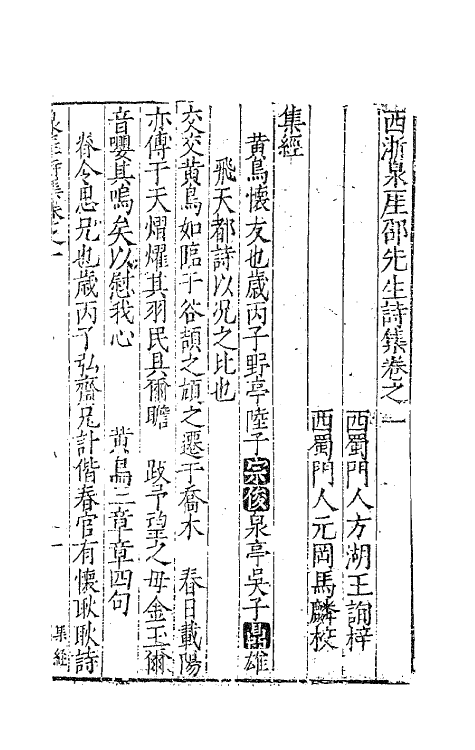 西浙泉厓邵先生詩集卷之一
西蜀門人方湖王詢梓
西蜀門人元岡馬麟校
集經
黃鳥懷友也歲丙子野亭陸子宗俊泉亭吳子鼎雄
飛天都詩以况之比也
交交黃鳥如臨于谷頡之頏之遷于喬木 春日載陽
亦傳于天熠燿其羽民具爾瞻 跂予望之毋金玉爾
音嚶其鳴矣以慰我心 黃鳥三章章四句
脊令思兄也歲丙子弘齋兄計偕春官有懷耿耿詩
泉厓詩集卷之一 一 集經